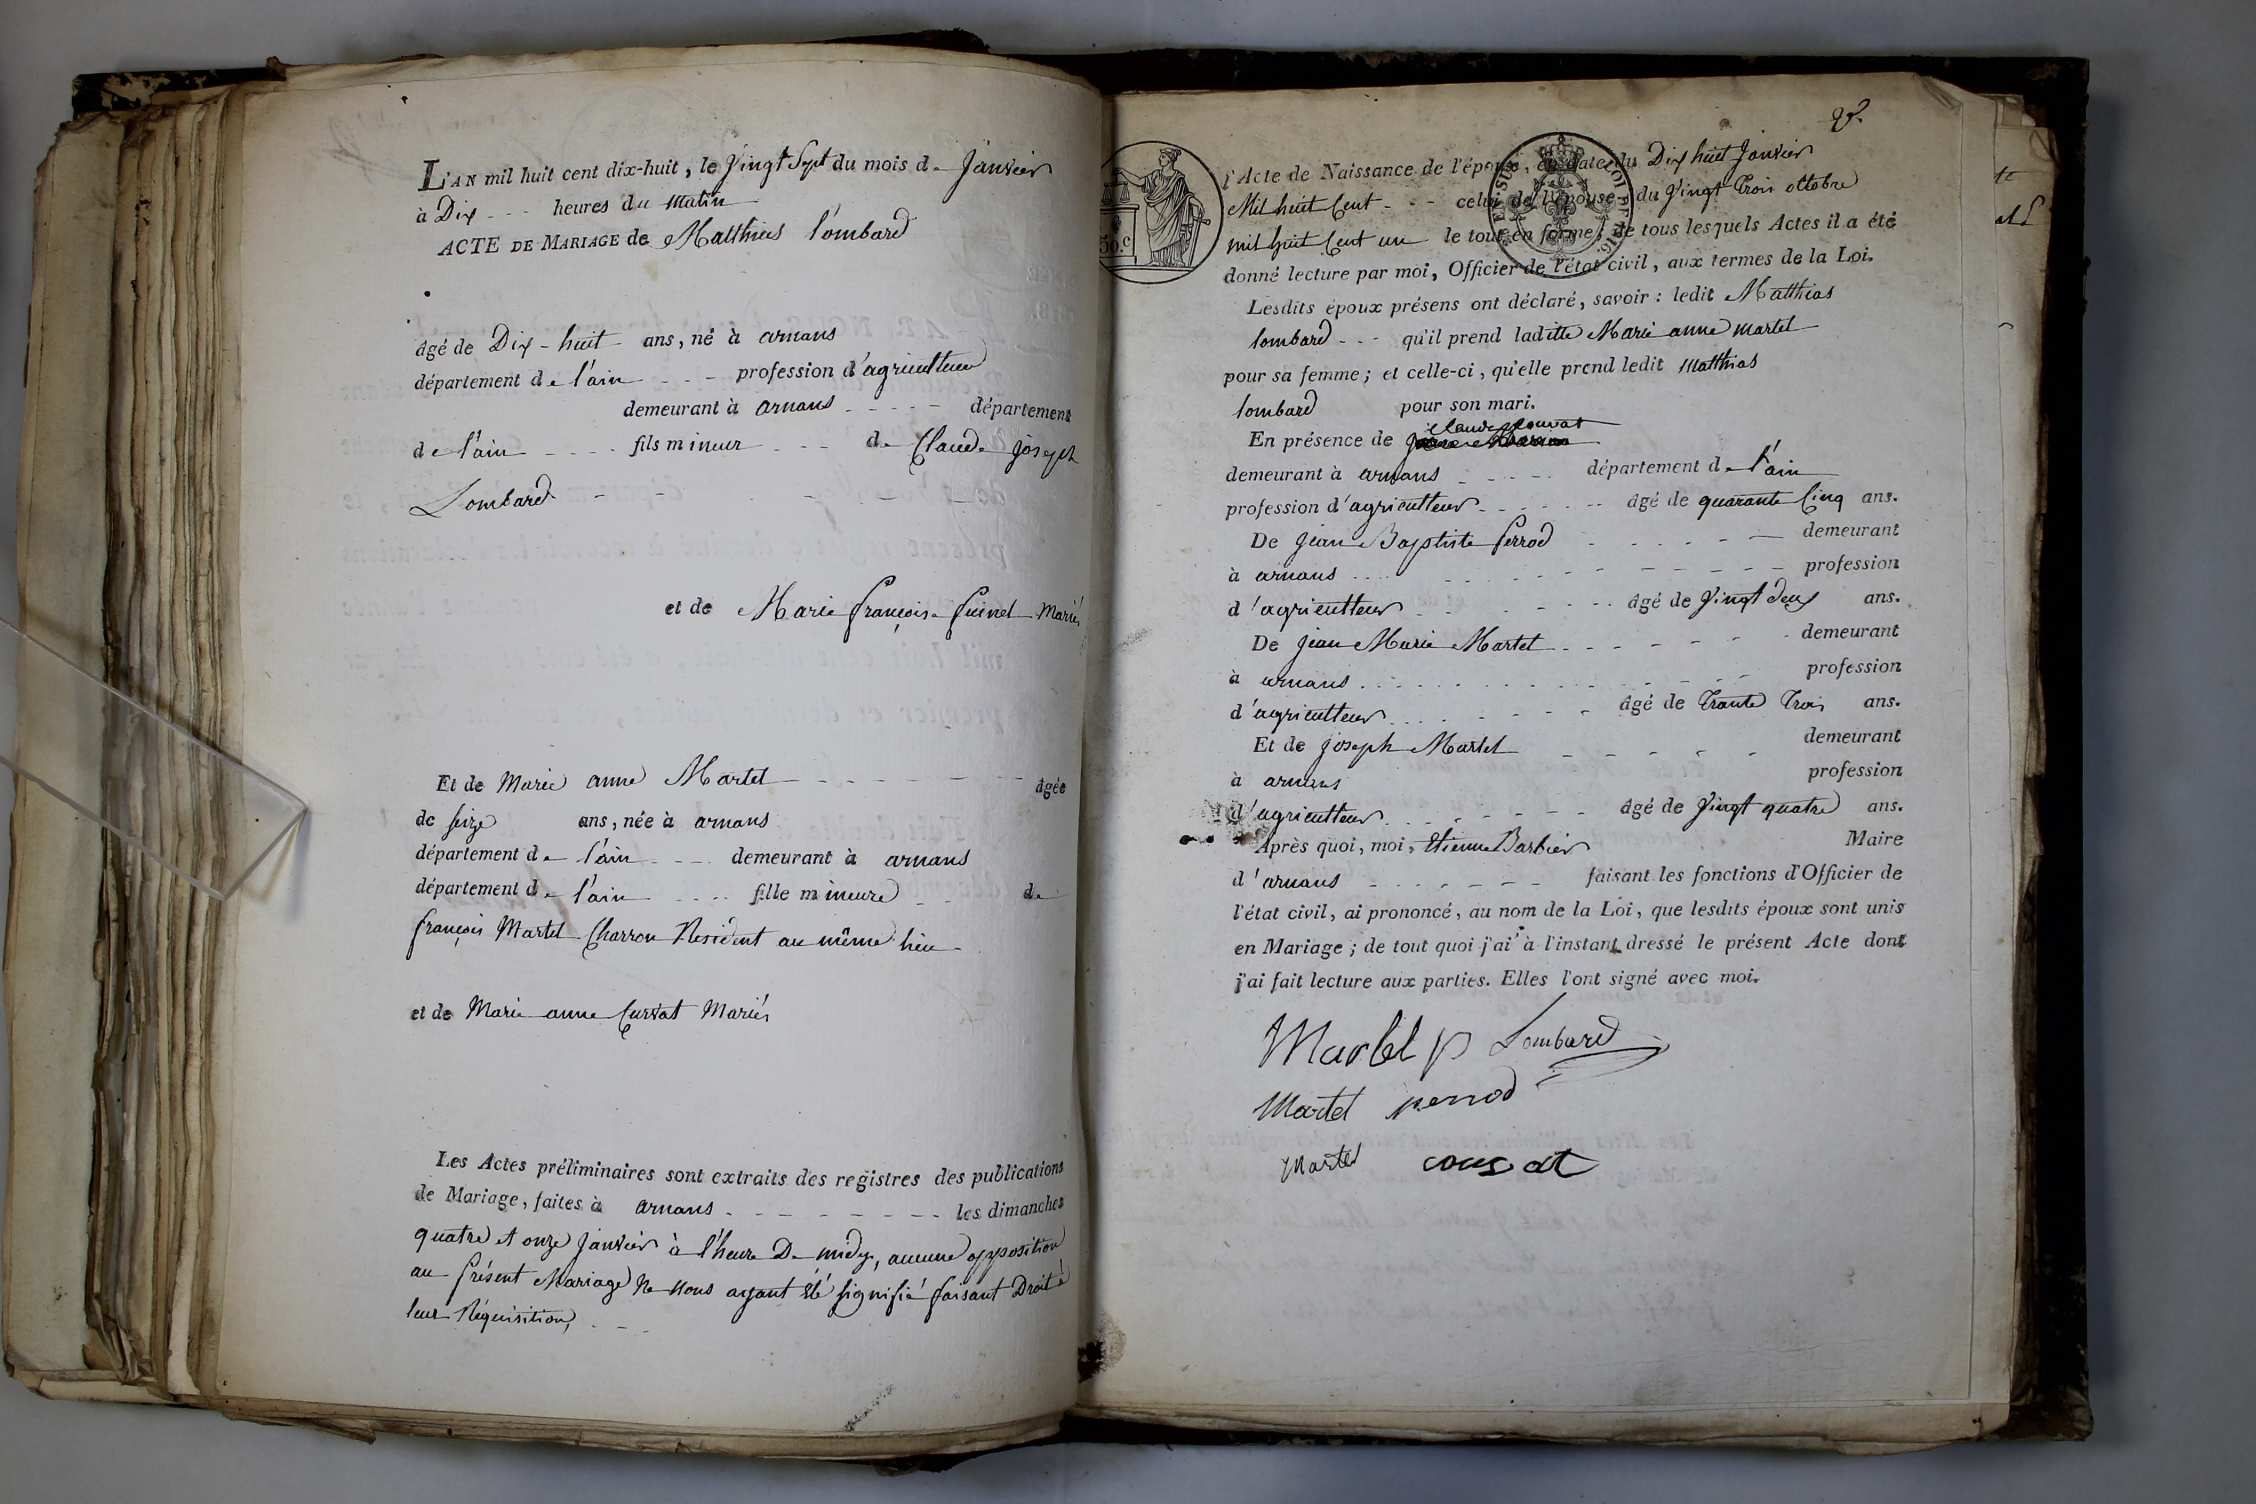 L'AN mil huit cent dix-huit, le Vingt Sept du mois de Janvier
à Dix - - - heures du matin
ACTE DE MARIAGE de Matthias lombard
âgé de Dix-huit ans, né à arnans
département de l'ain - - - profession d'agriculteur
demeurant à arnans - - - - - département
de l'ain - - - - fils mineur - - - de Claude joseph
Lombard - - - - - -
et de Marie françoise Mariés
Et de Marie anne Martel - - - - - - âgée
de seize ans, née à arnans
département de l'ain - - - demeurant à arnans
département de l'ain - - - - fille mineure - - de
françois Martel Charron Resident au même lieu
et de Marie anne Curvat Mariés
Les Actes préliminaires sont extraits des registres des publications
de Mariage, faites à arnans - - - - - - - - les dimanches
quatre et onze Janvier à l'heure De midy, aucune opposition
au présent Mariage Ne Nous ayant été signifié faisant Droit à
leur Réquisition, - - -
l'Acte de Naissance de l'époux, en date du Dix huit Janvier
Mil huit Cent - - - celui de l'épouse du Vingt Trois octobre
mil huit Cent un le tout en forme; de tous lesquels Actes il a été
donné lecture par moi, Officier de l'état civil, aux termes de la Loi.
Lesdits époux présens ont déclaré, savoir : ledit Matthias
lombard - - - qu'il prend laditte Marie anne martel
pour sa femme; et celle-ci, qu'elle prend ledit Matthias
lombard pour son mari.
En présence de Claude
demeurant à arnans - - - - - département de l'ain
profession d'agriculteur - - - - - - âgé de quarante Cinq ans.
De jean Baptiste perrod - - - - - - demeurant
à arnans - - - - - - - - - - profession
d'agriculteur - - - - - - âgé de Vingt deux ans.
De jean Marie Martel - - - - - - demeurant
à arnans - - - - - - - - - - profession
d'agriculteur - - - - - - âgé de Trante Trois ans.
Et de joseph Martel - - - - - demeurant
à arnans profession
d'agriculteur - - - - - - âgé de Vingt quatre ans.
Après quoi, moi, etienne Barbier Maire
d'arnans - - - - - - - faisant les fonctions d'Officier de
l'état civil, ai prononcé, au nom de la Loi, que lesdits époux sont unis
en Mariage; de tout quoi j'ai à l'instant dressé le présent Acte dont
j'ai fait lecture aux parties. Elles l'ont signé avec moi.
Martel p Lombard
Martel perrod
Martel
50 c